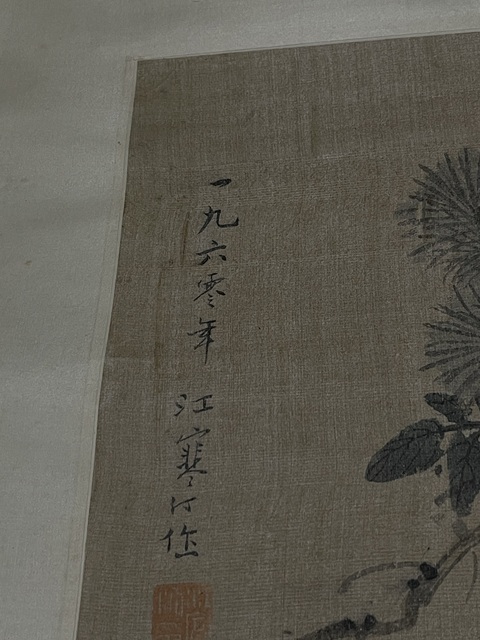 一九六零年 江寒汀作